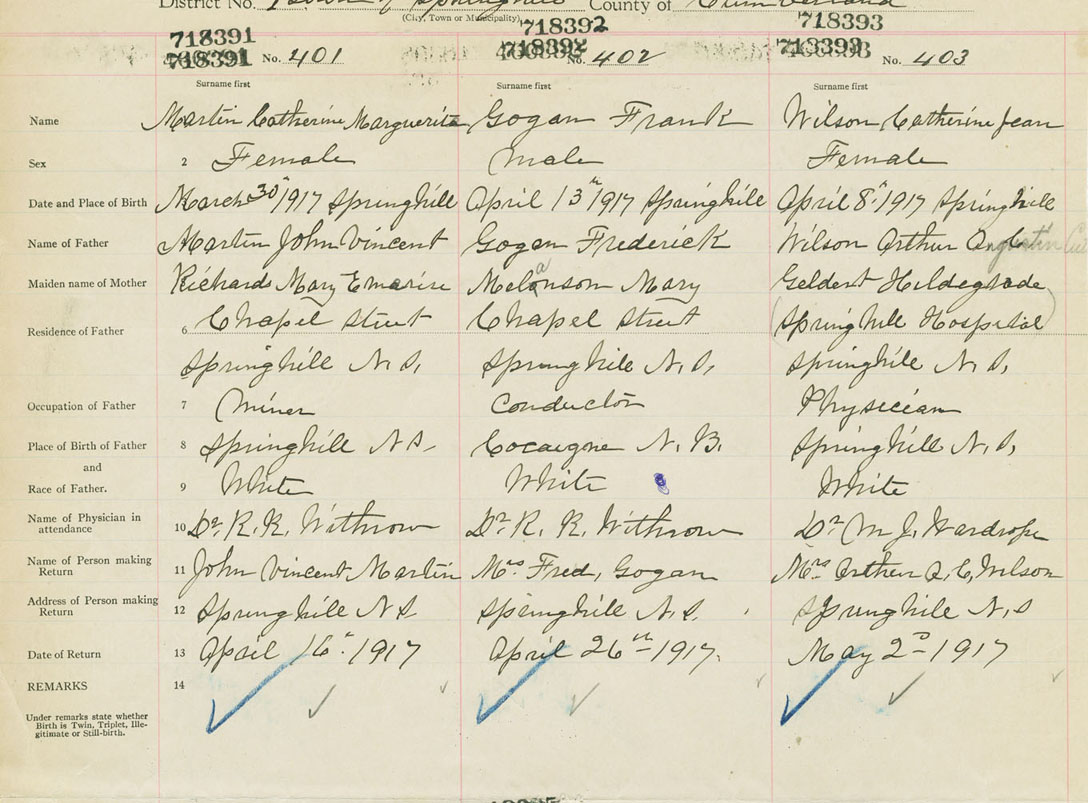 District No. Town of Springhill County of Cumberland
(City, Town or Municipality)
718391 718392 718393
718391 No. 401 718392 No. 402 718393 No. 403
Surname first Surname first Surname first
Name Martin Catherine Marguerite Gogan Frank Wilson Catherine Jean
Sex 2 Female Male Female
Date and Place of Birth March 30th 1917 Springhill April 13th 1917 Springhill April 8th 1917 Springhill
Name of Father Martin John Vincent Gogan Frederick Wilson Arthur
Maiden name of Mother Richards Mary Melanson Mary Geldert Hildegrade
Residence of Father 6 Chapel Street Chapel Street (Springhill Hospital)
Springhill N.S. Springhill N.S. Springhill N.S.
Occupation of Father 7 Miner Conductor Physician
Place of Birth of Father 8 Springhill N.S. Cocaigne N.B. Springhill N.S.
and
Race of Father. 9 White White White
Name of Physician in attendance 10 Dr. R. R. Withrow Dr. R. R. Withrow Dr. M. J. Wardrope
Name of Person making Return 11 John Vincent Martin Mrs Fred, Gogan Mrs Arthur A, C, Wilson
Address of Person making Return 12 Springhill N.S. Springhill N.S. Springhill N.S
Date of Return 13 April 16" 1917 April 26th 1917. May 2nd 1917
REMARKS 14
Under remarks state whether
Birth is Twin, Triplet, Ille-
gitimate or Still-birth.